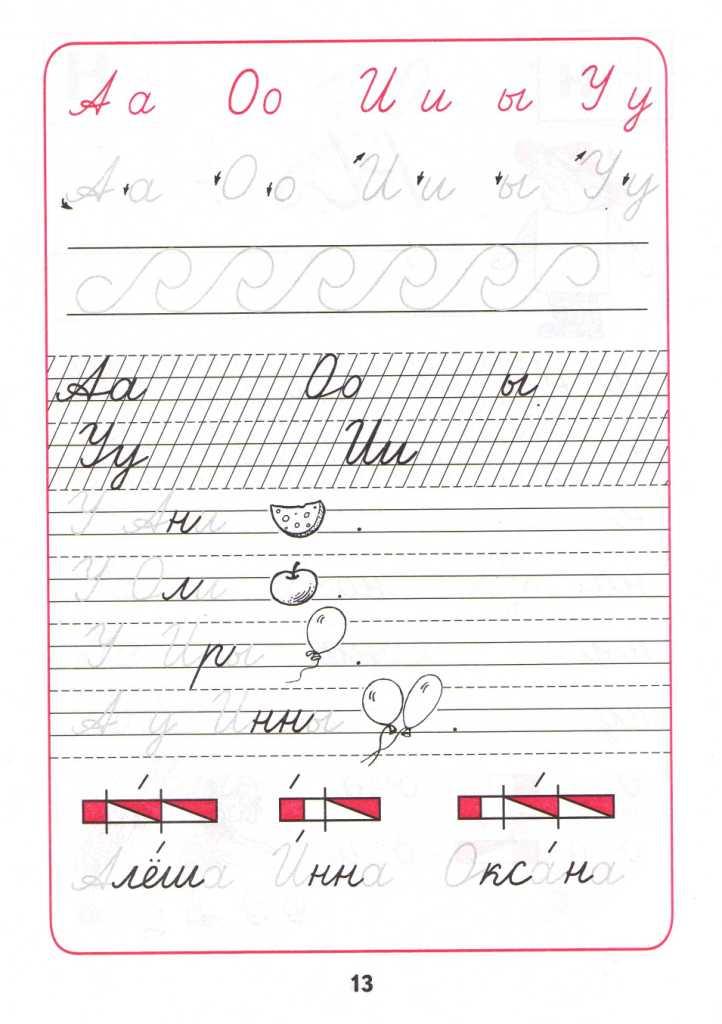 Аа Оо Ии ы Уу
Аа Оо Ии ы Уу
Аа Оо ы
Уу Ии
У Ани .
У Оли .
У Иры .
А у Инны .
Алё́ша И́нна Окса́на
13